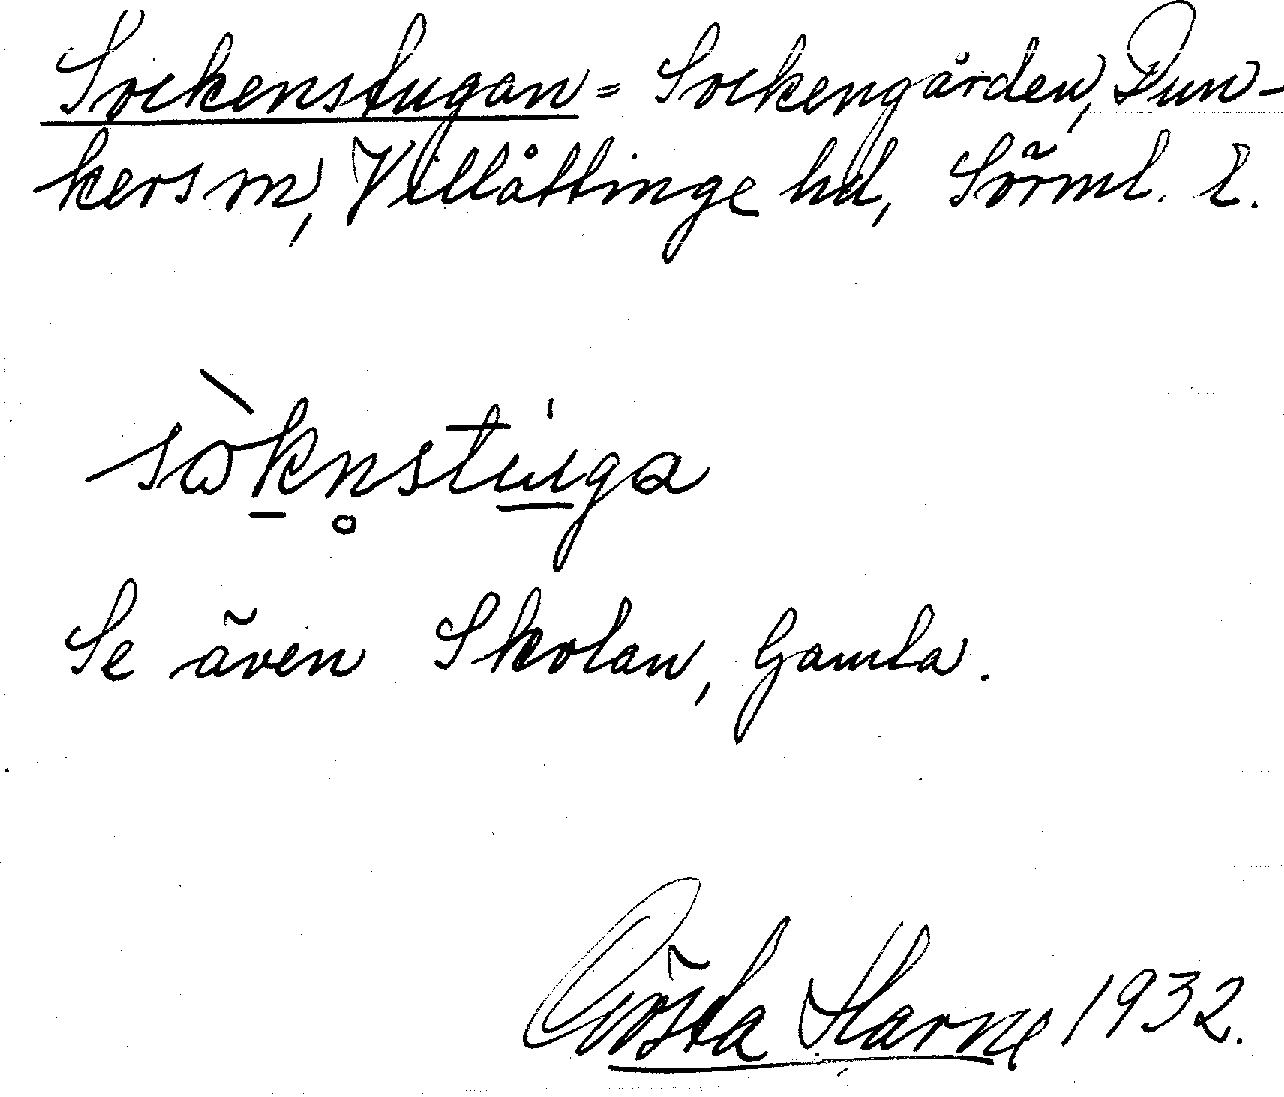 Sockenstugan = Sockengården, Dun-
kers sn, Villåttinge hd, Sörml. l.
sòkn̥stuga
Se även Skolan, Gamla.
Gösta Harne 1932.